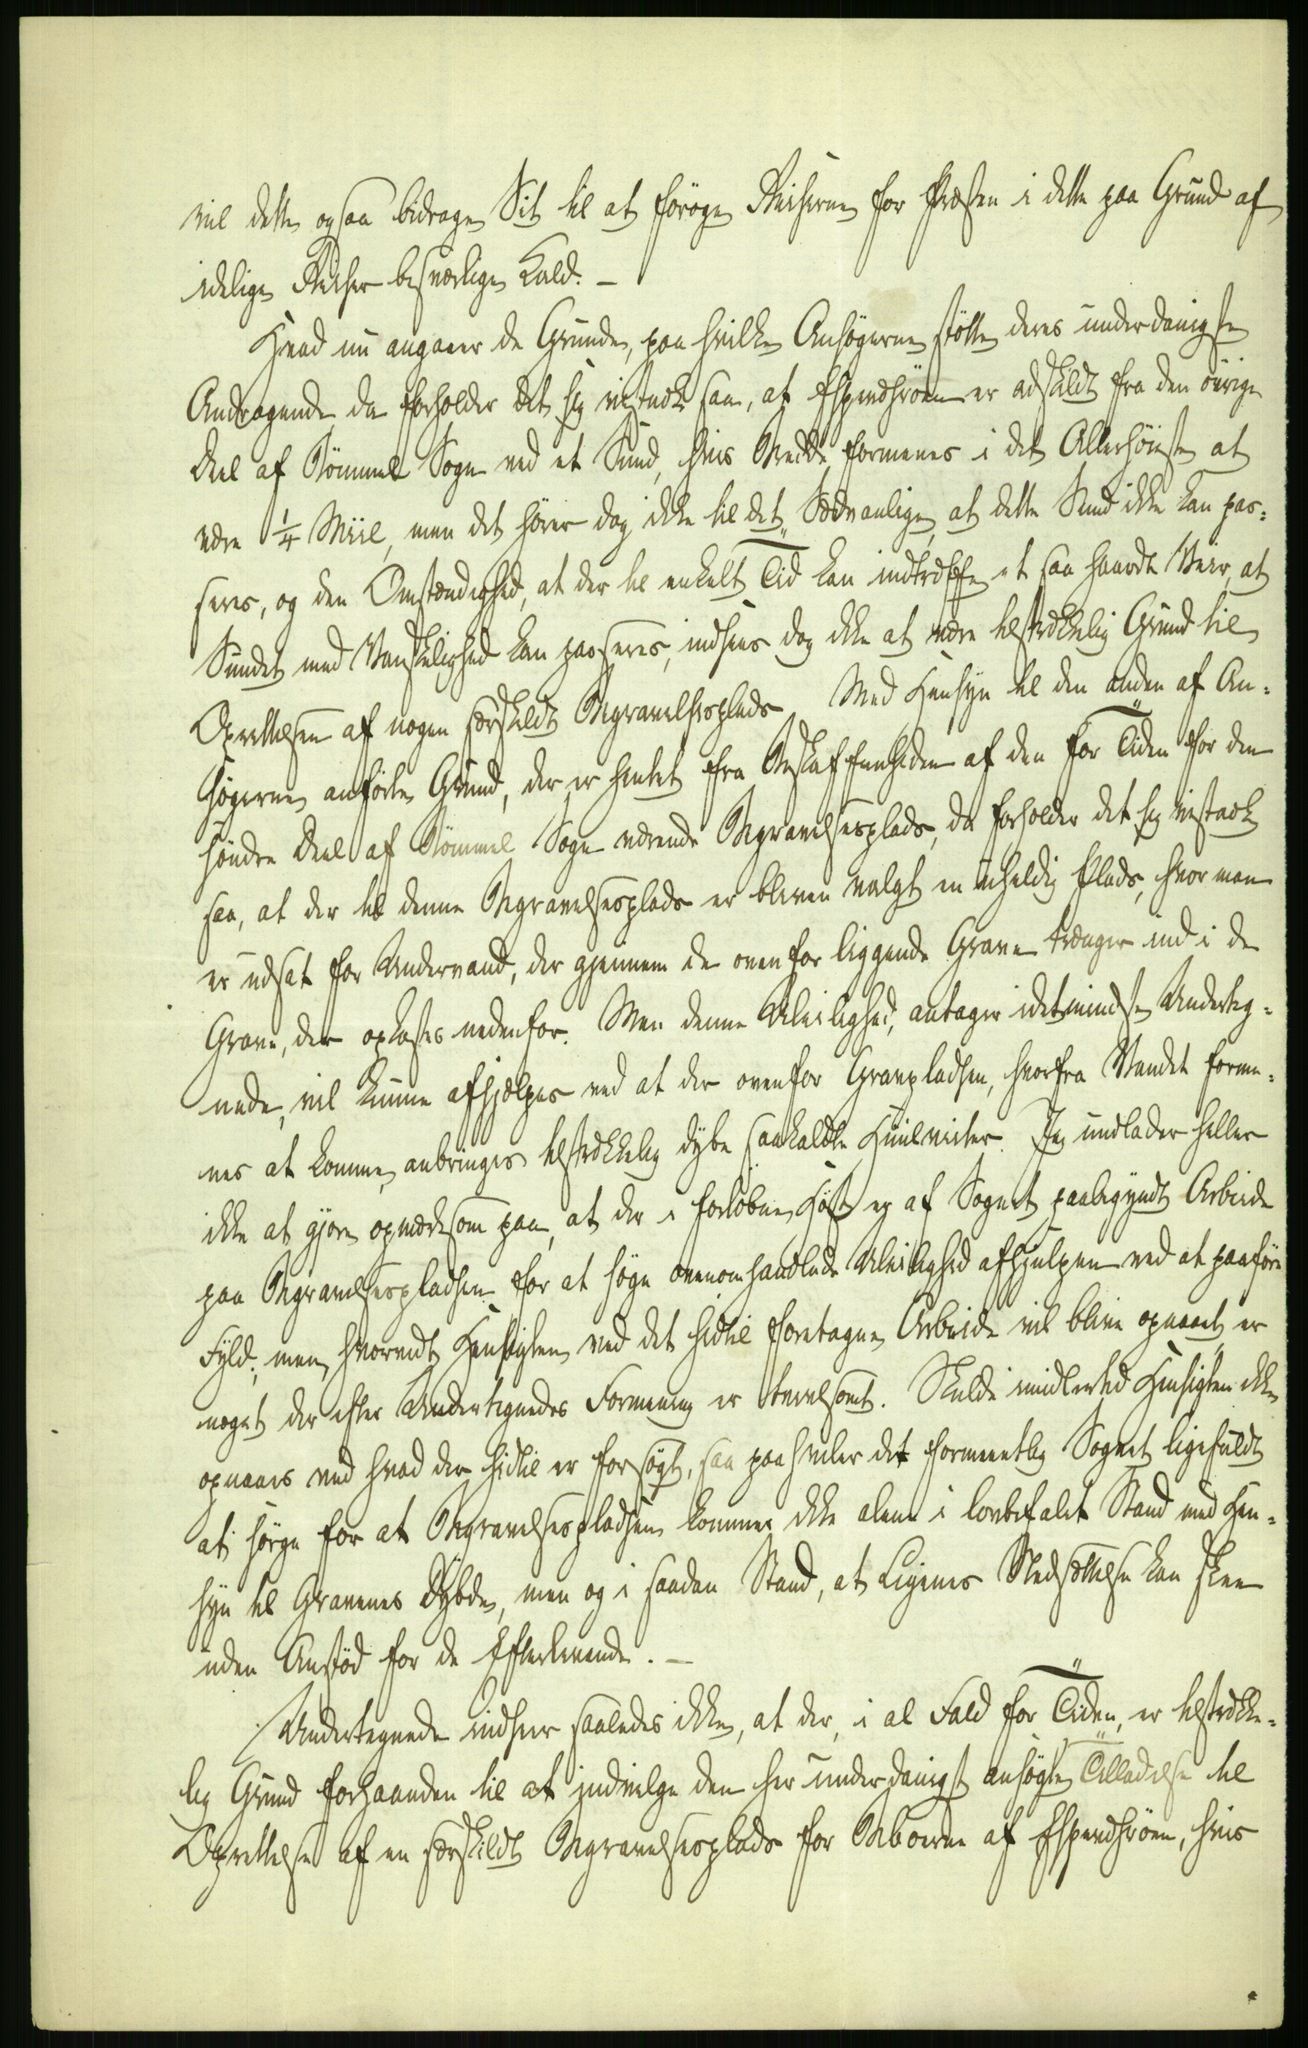 vil dette ogsaa bidrage Sit til at forøge Reiserne for Præsten i dette paa Grund af
idelige Reiser besværlige Kald. –
Hvad nu angaaer de Grunde, paa hvilke Ansøgerne støtte deres underdanigste
Andragende, da forholder det sig vistnok saa, at Espendsøen er adskildt fra den øvrige
Deel af Rømmel Sogn ved et Sund, hvis Bredde formenes i det Allerhøieste at
være 1/4 Miil, men det hører dog ikke til det Sædvanlige, at dette Sund ikke kan pas-
seres, og den Omstændighed, at der til enkelt Tid kan indtræffe et saa haardt Veir, at
Sundet med Vanskelighed kan passeres, indsees dog ikke at være tilstrækkelig Grund til
Oprettelsen af nogen særskildt Begravelsesplads. Med Hensyn til den anden af An-
søgerne anførte Grund, der er hentet fra Beskaffenheden af den for Tiden for den
søndre Deel af Rømmel Sogn værende Begravelsesplads, da forholder det sig vistnok
saa, at der til denne Begravelsesplads er bleven valgt en uheldig Plads, hvor man
er udsat for Undervand, der gjennem de ovenfor liggende Grave trænger ind i de
Grave, der opkastes nedenfor. Men denne Uleilighed, antager idetmindste Underteg-
nede, vil kunne afhjælpes ved at der ovenfor Gravpladsen, hvorfra Vandet forme-
nes at komme, anbringes tilstrækkelig dybe saakaldte Huulveiter. Jeg undlader heller
ikke at gjøre opmærksom paa, at der i forløbne Høst er af Sognet paabegyndt Arbeide
paa Begravelsespladsen for at søge ovenomhandlede Uleilighed afhjulpen ved at paaføre
Fyld; men, hvorvidt Hensigten ved det hidtil foretagne Arbeide vil blive opnaaet, er
noget der efter Undertegnedes Formening er tvivlsomt. Skulde imidlertid Hensigten ikke
opnaaes ved hvad der hidtil er forsøgt, saa paahviler det formeentlig Sognet ligefuldt
at sørge for at Begravelsespladsen kommer ikke alene i lovbefalet Stand med Hen-
syn til Gravenes Dybde, men og i saadan Stand, at Ligenes Nedsættelse kan skee
uden Anstød for de Efterlevende. –
Undertegnede indseer saaledes ikke, at der, i al Fald for Tiden, er tilstrække-
lig Grund forhaanden til at indvilge den her underdanigst ansøgte Tilladelse til
Oprettelse af en særskildt Begravelsesplads for Beboerne af Espendsøen, hvis